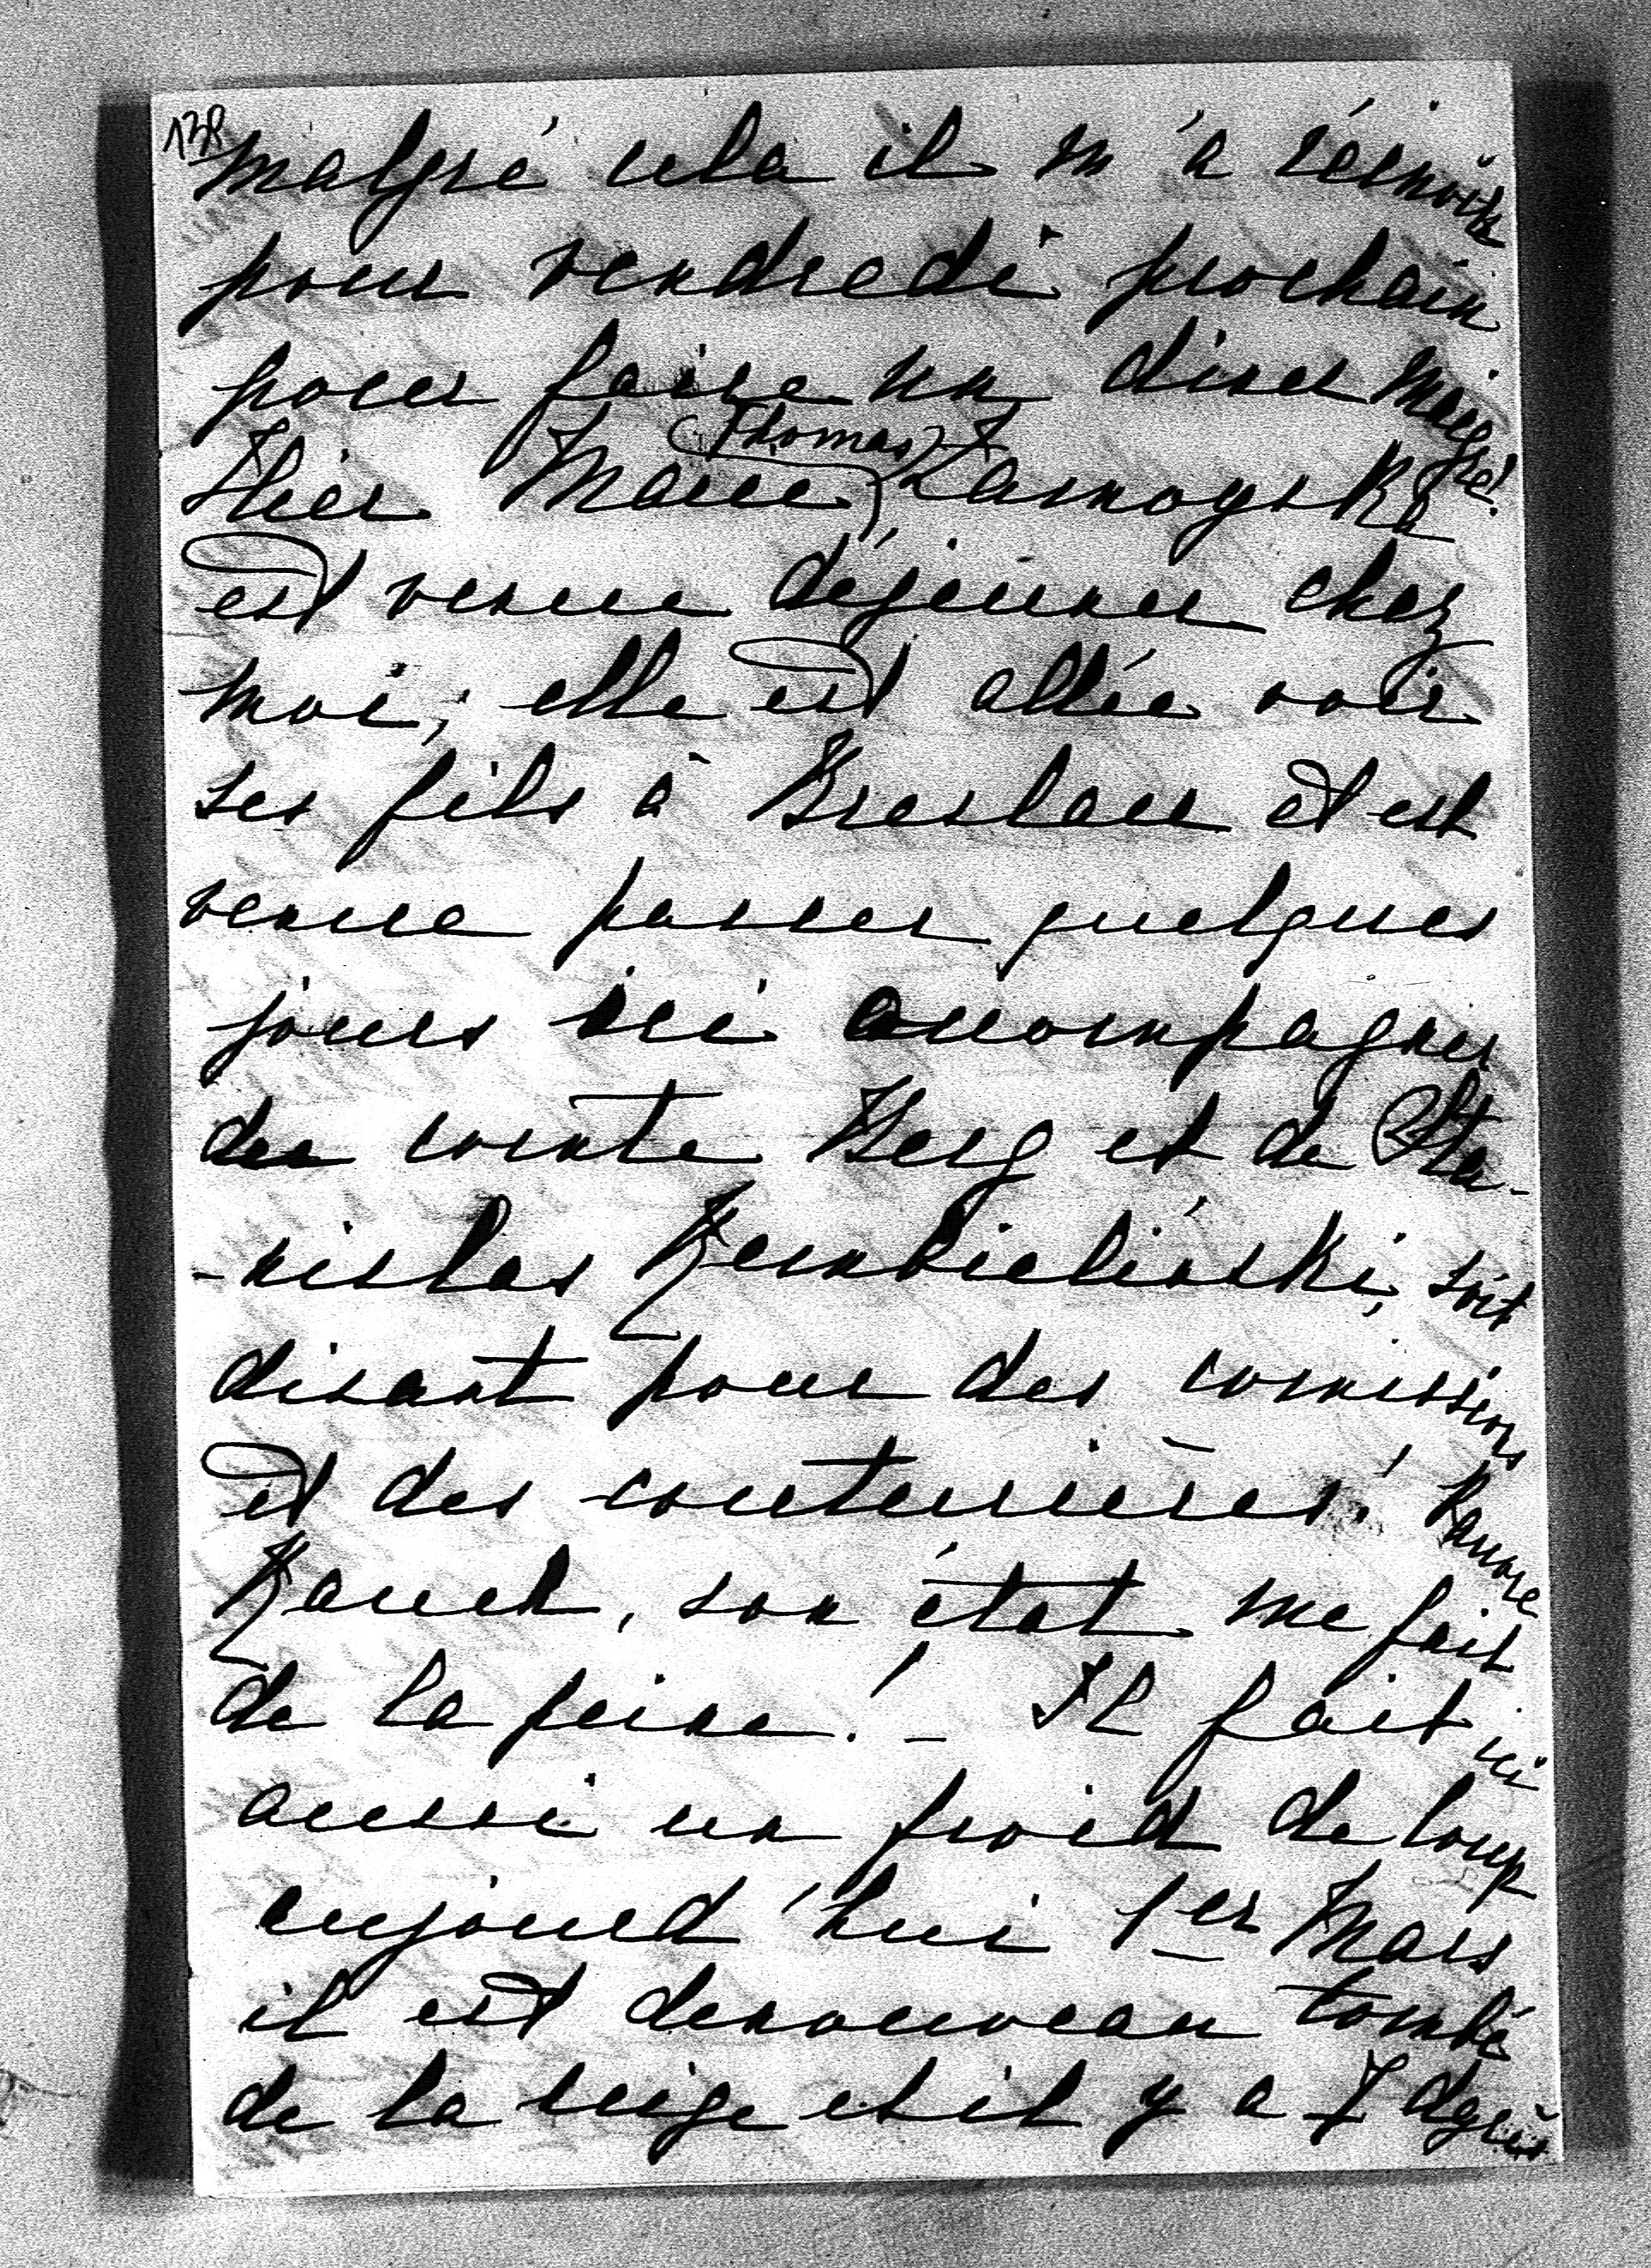 138
malgré cela il m'a réinvité
pour vendredi prochain
pour faire un diner maigre!
Hier Marie (Thomas) Zamoyska
est venue déjeuner chez
moi, elle est allée voir
ses fils à Breslau et est
venue passer quelques
jours ici accompagnée
du comte Berg et de Sta-
-nislas Rembielinski, soit
disant pour des comissions
et des couturières! Pauvre
Rauch, son état me fait
de la peine! - Il fait ici
aussi un froid de loup
aujourd'hui 1er Mars
il est denouveau tombé
de la neige et il y a 7 dgrés